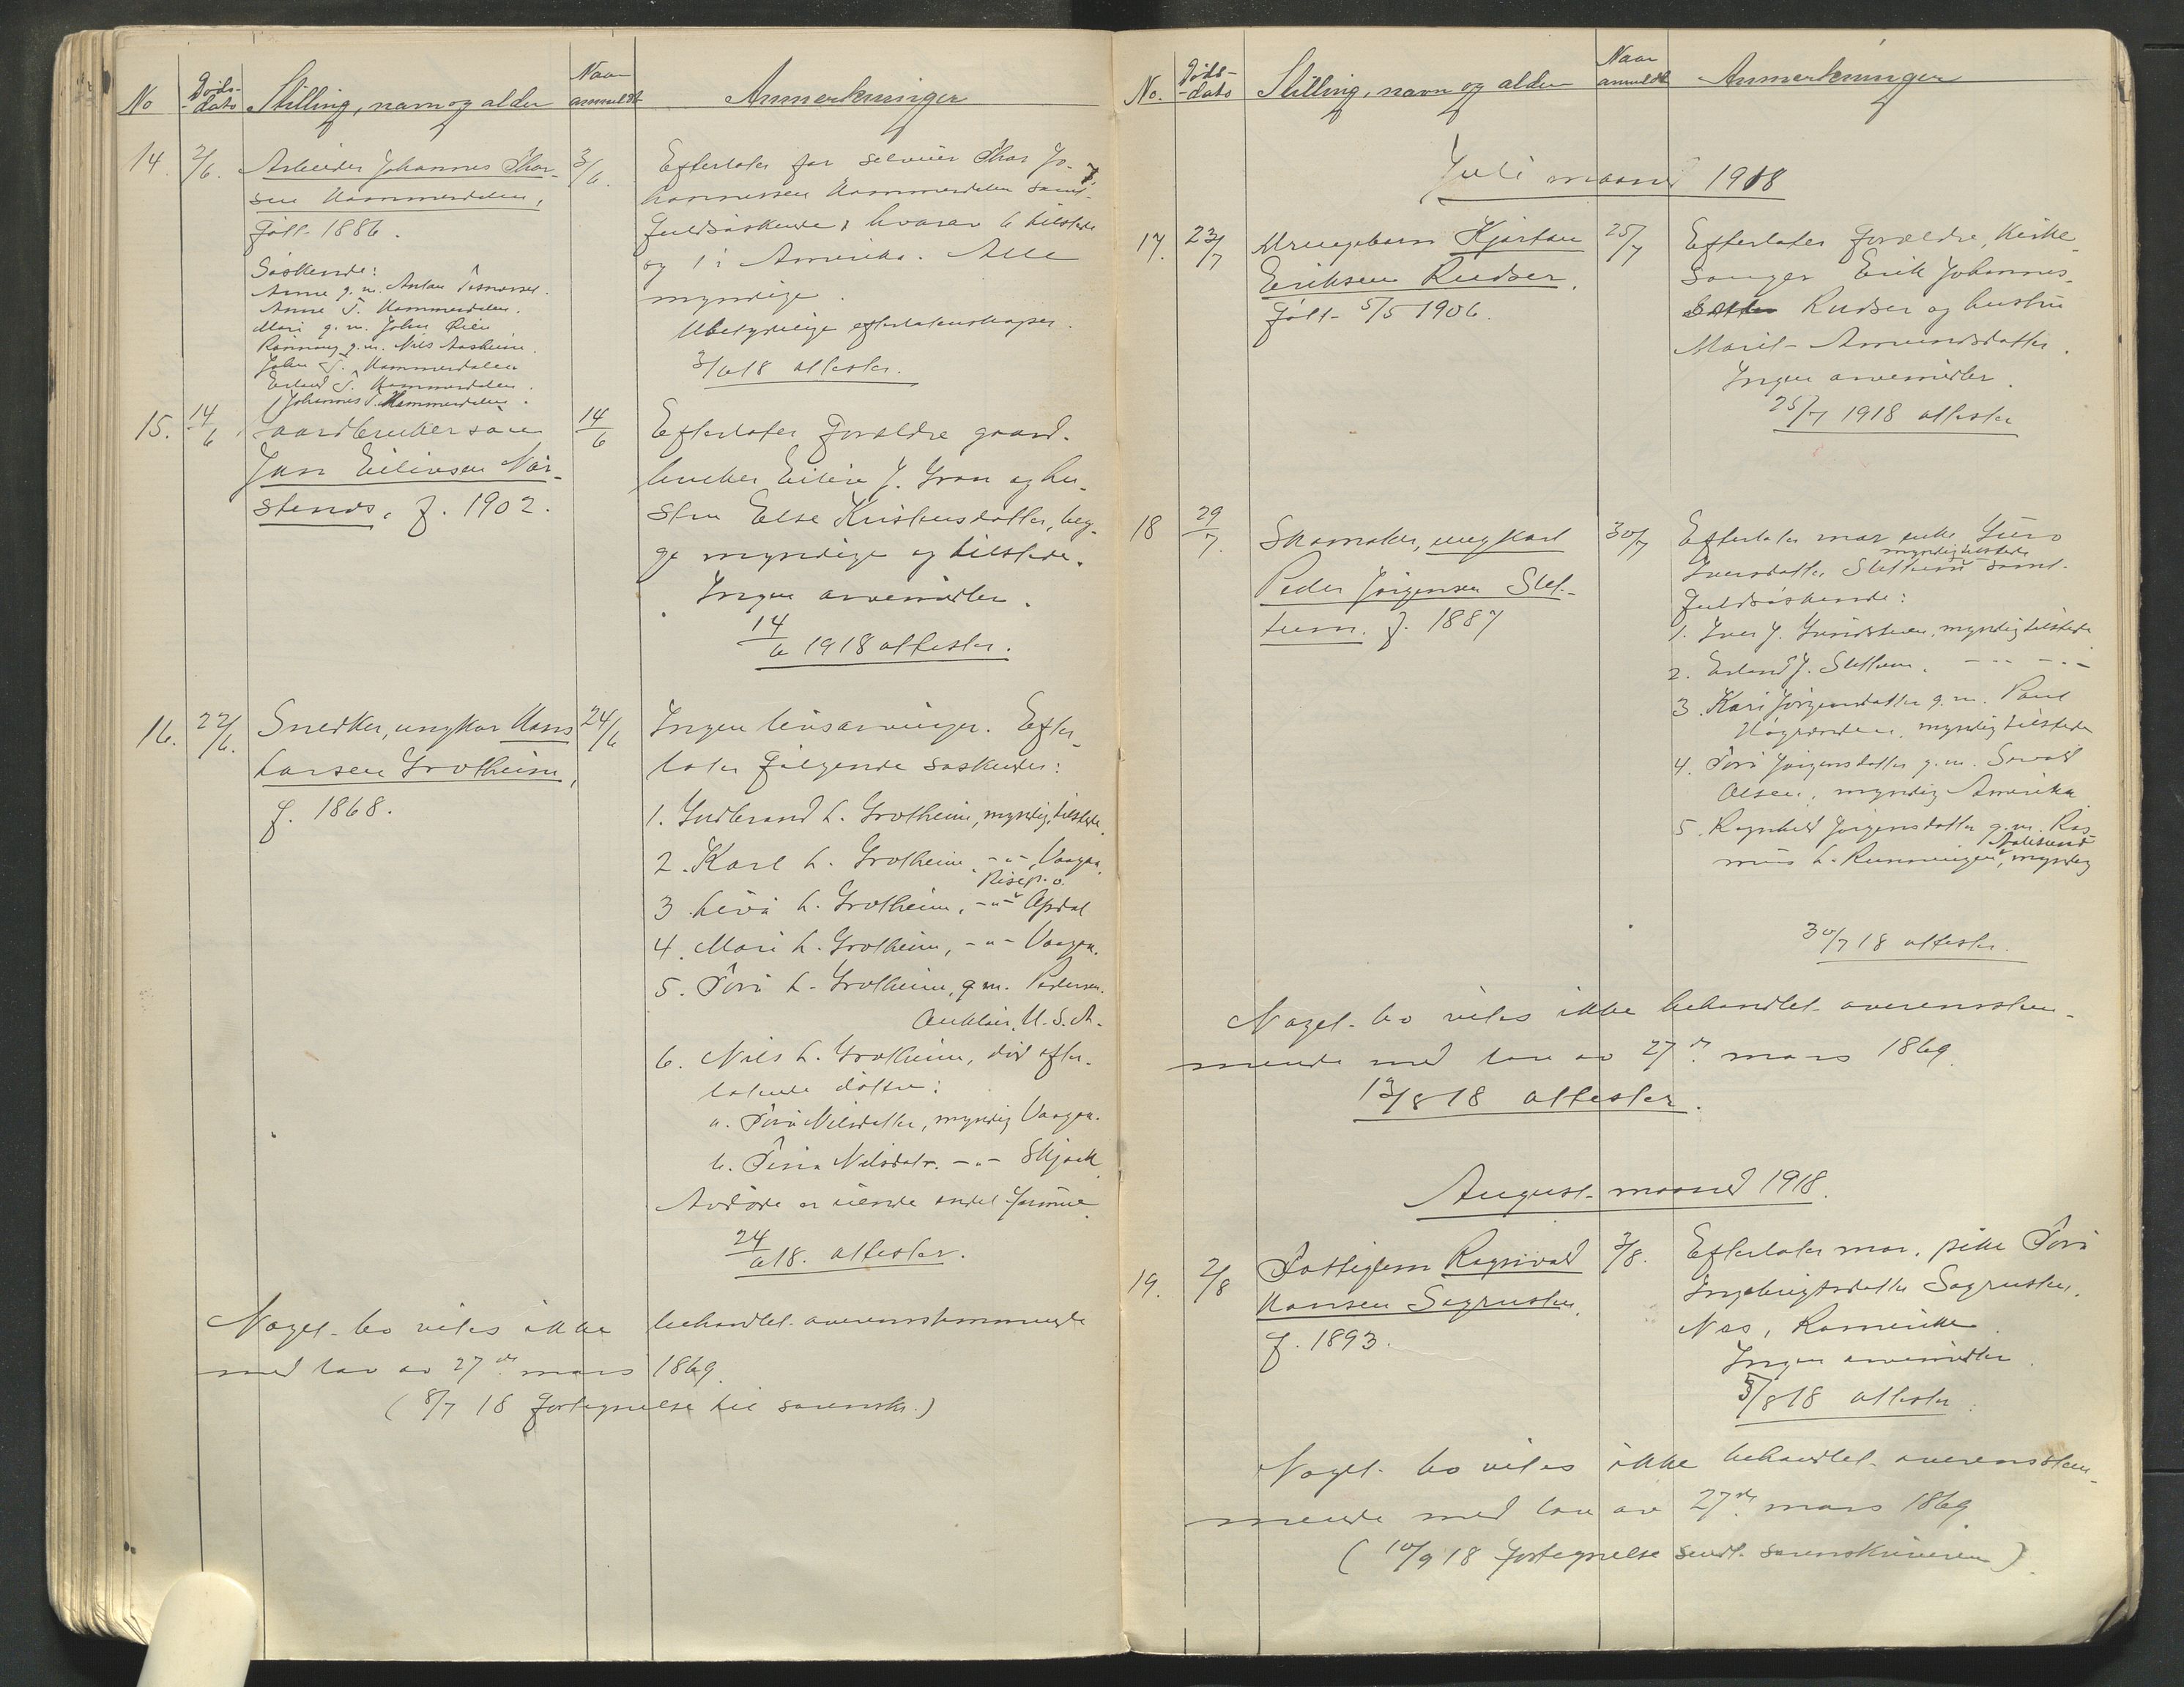 No Døds-dato Stilling, navn og alder Naar anmeldt Anmerkninger
14. 2/6. Arbeider Johannes Thor-
sen Kammerdalen,
født 1886.
Søskende:
Anne g. m. Anton
Anne T. Kammerdalen.
Mari g. m. John Øien
Rønnaug g. m. Nils Aasheim.
John T. Kammerdalen
Erland T. Kammerdalen.
Johannes T. Kammerdalen.
3/6.
Efterlater far selveier Thor Jo-
hannessen Kammerdalen samt 7
fuldsøskende, hvorav 6 tilstede
og 1 i Amerika. Alle
myndige.
Ubetydelige efterlatenskaper.
3/6 18 attester.
15. 14/6 Gaardbrukersøn
Jon Eilivsen Nør-
stends, f. 1902.
14/6
Efterlater forældre gaard-
bruker Eiliv J. Gron og hu-
stru Else Kristensdatter, beg-
ge myndige og tilstede.
Ingen arvemidler.
14/6 1918 attester.
16. 22/6. Snedker, ungkar Hans
Larsen Grotheim,
f. 1868.
24/6
Ingen livsarvinger. Efter-
later følgende søskender:
1. Gudbrand L. Grotheim, myndig, tilstede.
2. Karl L. Grotheim, -"- Vaagaa.
3. Livå L. Grotheim, -"- Opdal
4. Mari L. Grotheim, -"- Vaagaa.
5. Tora L. Grotheim, g.m. Pedersen.
U.S.A.
6. Nils L. Grotheim, død efter-
latende døttre:
a. Tora Nilsdatter, myndig Vaagaa.
b. Nilsdatr. -"- Skjaak
Avdøde er eiende endel formue.
24/6 18. attester.
Noget bo vites ikke behandlet overensstemmende
med lov av 27de mars 1869.
(8/7 18 fortegnelse til sorenskr.)
No. Døds-dato Stilling, navn og alder Naar anmeldt Anmerkninger
Juli maaned 1918
17. 23/7 Drengebarn Kjartan
Eriksen Rudser.
født 5/5 1906.
25/7
Efterlater forældre, kirke-
sanger Erik Johannes-
Rudser og hustru
Marit Amundsdatter.
Ingen arvemidler.
25/7 1918 attester
18 29/7. Skomaker, ungkarl
Peder Jørgensen Slet-
tum. f. 1887
30/7
Efterlater mor enke Guro
myndig tilstede
Iversdatter Slettum samt
fuldsøskende:
1. Iver J. myndig tilstede
2. Erland J. Slettum. -"- -"-
3. Kari Jørgensdatter g. m. Paul
myndig tilstede
4. Tora Jørgensdatter g. m. Sevald
Olsen, myndig Amerika
5. Ragnhild Jørgensdatter g. m. Ras-
Aalesund
mus L. Rønningen, myndig
30/7 18 attester.
Noget bo vites ikke behandlet overensstem-
mende med lov av 27de mars 1869.
13/8 18 attester.
August maaned 1918.
19. 2/8 Fattiglem Ragnvald
Hansen Sagrusten.
f. 1893.
3/8.
Efterlater mor, pike Tora
Ingebrigtsdatter Sagrusten.
Nes, Romerike
Ingen arvemidler.
3/8 18 attester.
Noget bo vites ikke behandlet overensstem-
mende med lov av 27de mars 1869.
(10/9 18 fortegnelse sendt sorenskriveren)